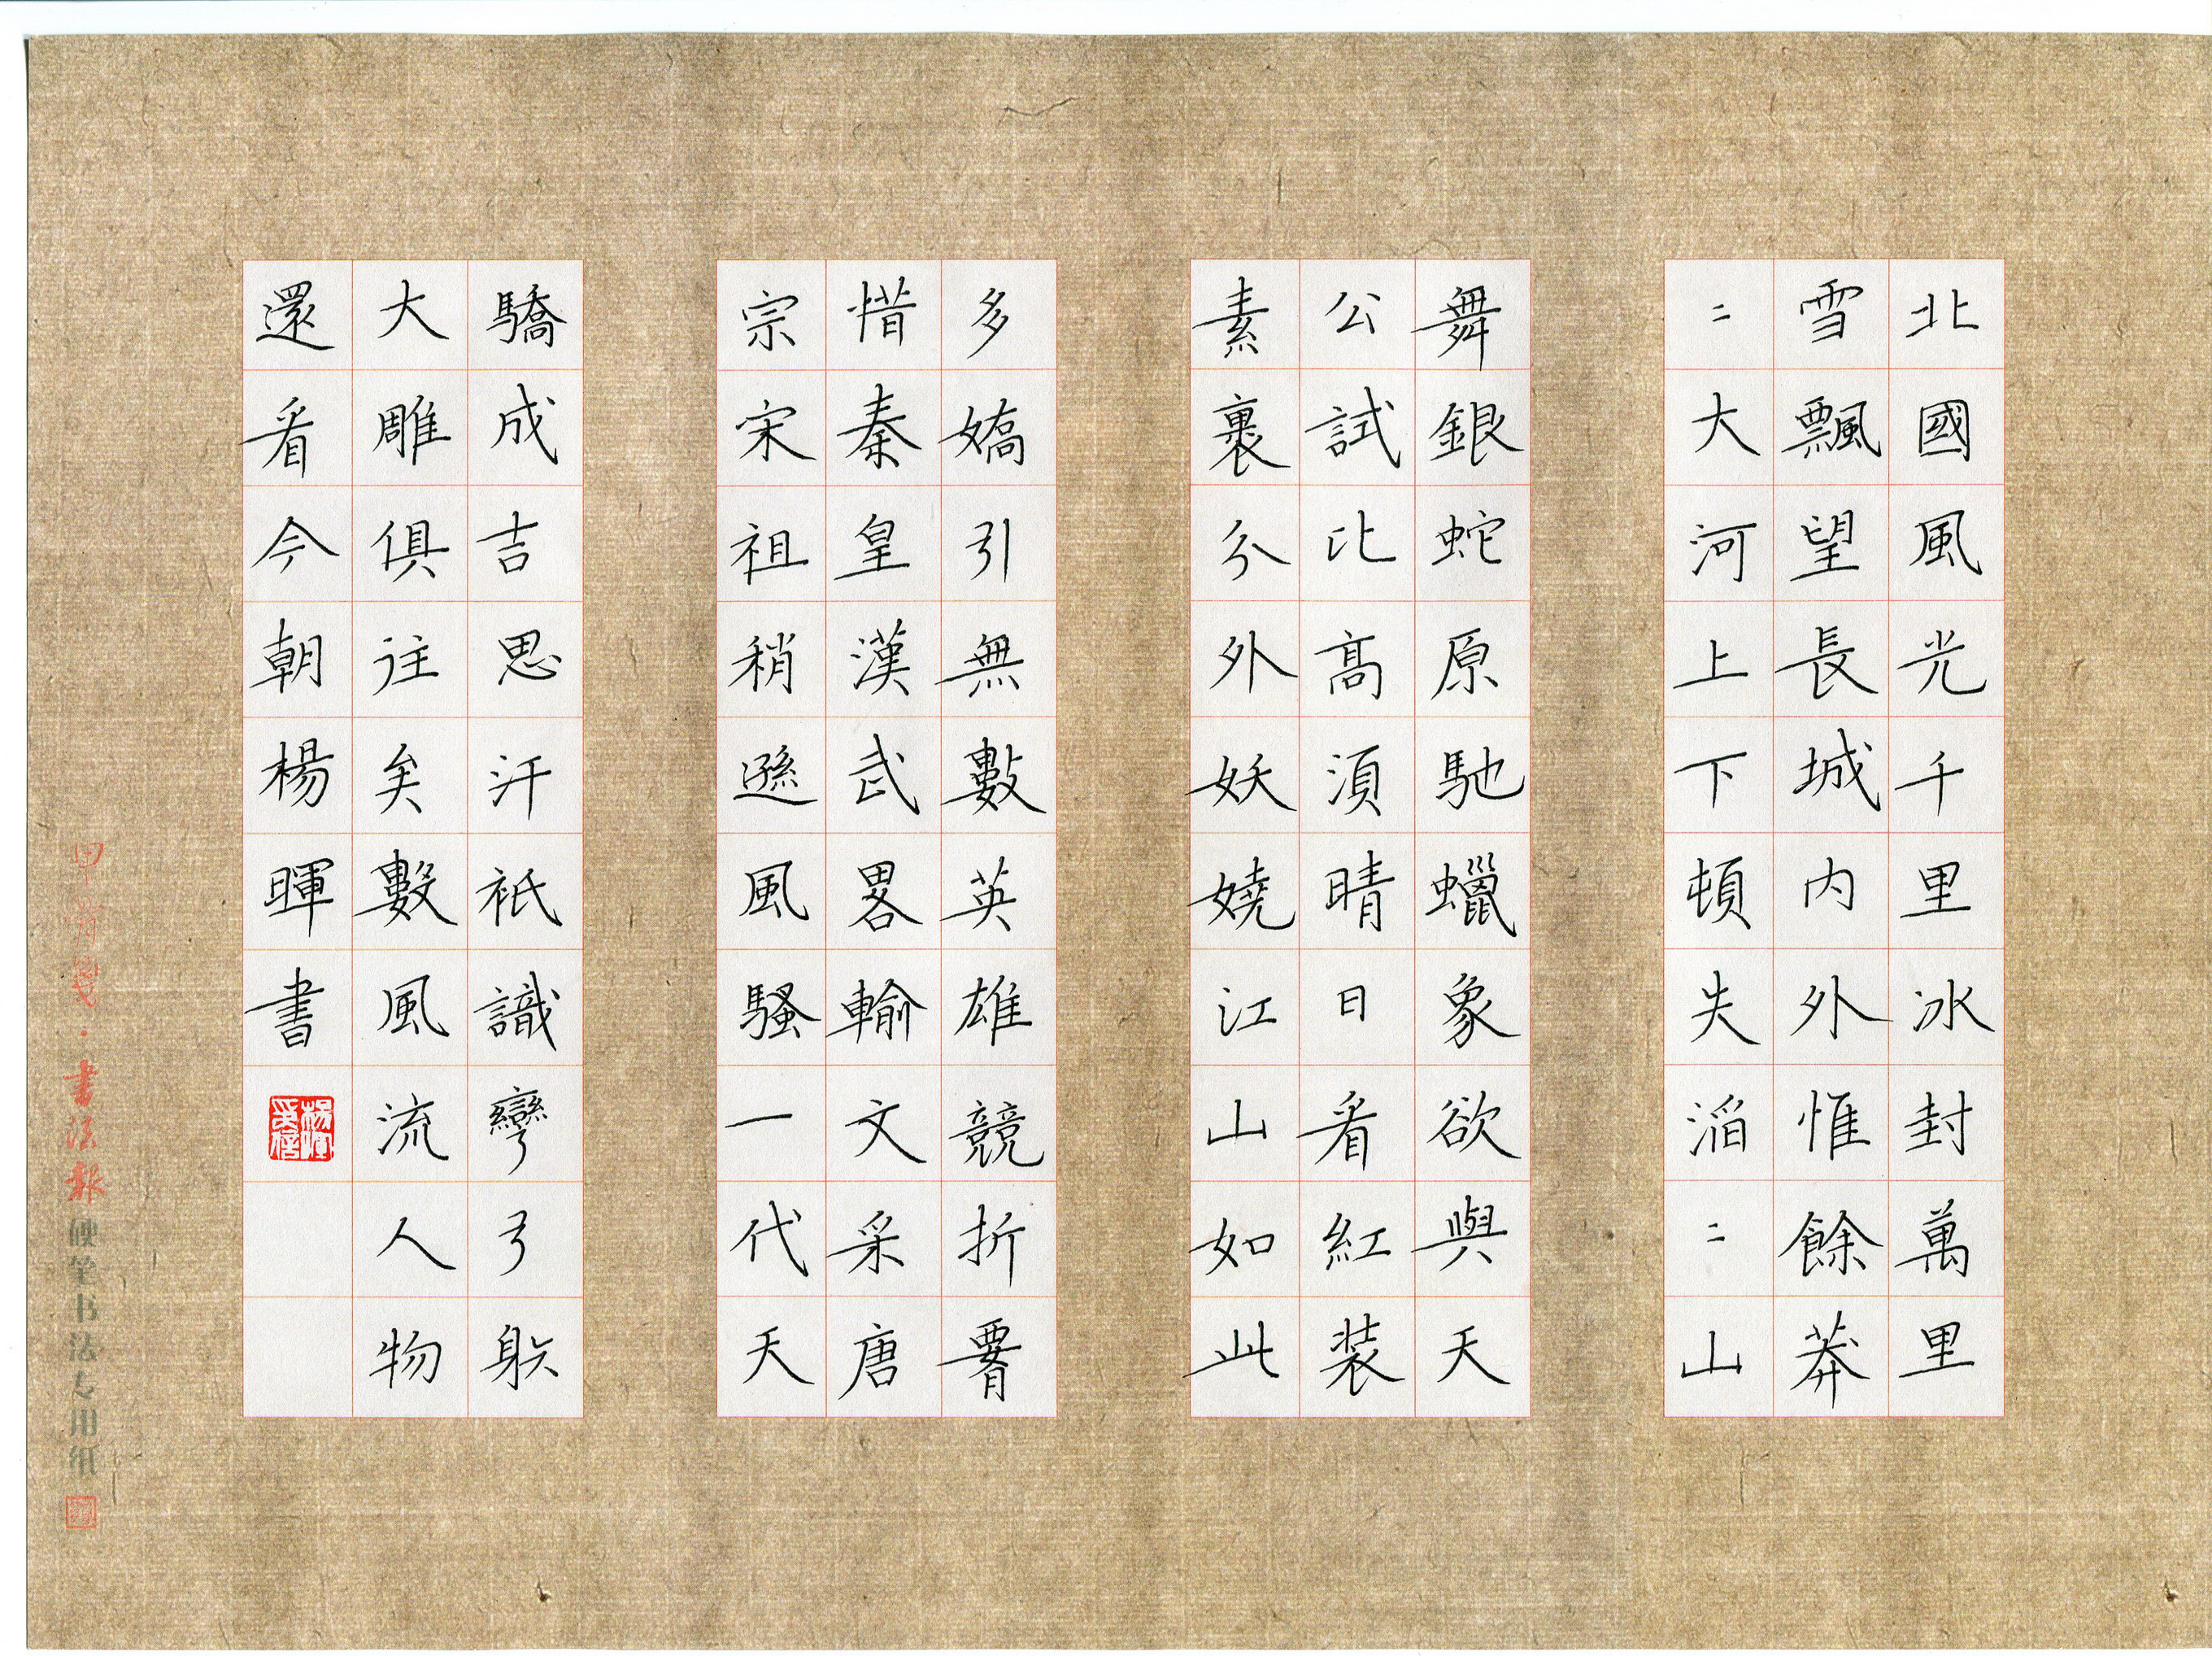 北國風光千里冰封萬里
雪飄望長城内外惟餘莽
〻大河上下頓失滔〻山
舞銀蛇原馳蠟象欲與天
公試比高須晴日看紅装
素裹分外妖嬈江山如此
多嬌引無數英雄競折腰
惜秦皇漢武畧輸文采唐
宗宋祖稍遜風騷一代天
驕成吉思汗衹識彎弓射
大雕俱往矣數風流人物
還看今朝楊暉書
書法報硬笔书法专用纸